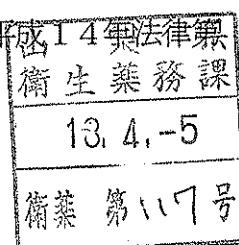 平成14年法律第
衛生薬務課
13.4.-5
衛薬 第117号